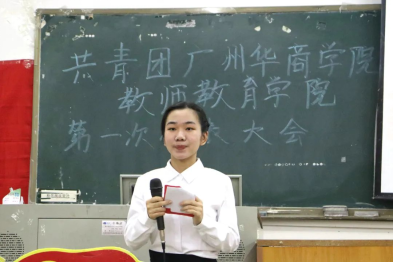 共青团广州华商学院
教师教育学院
第一次 大会